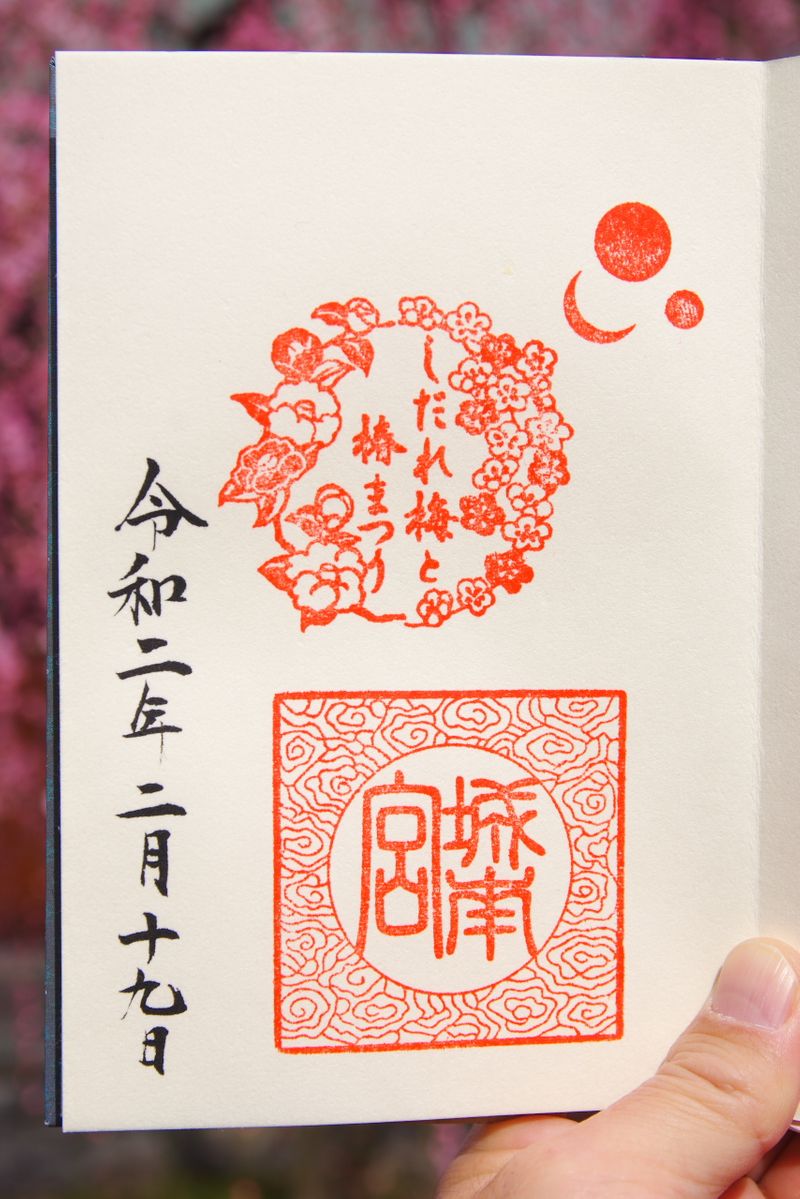 しだれ梅と
椿まつり
城南
宮
令和二年二月十九日